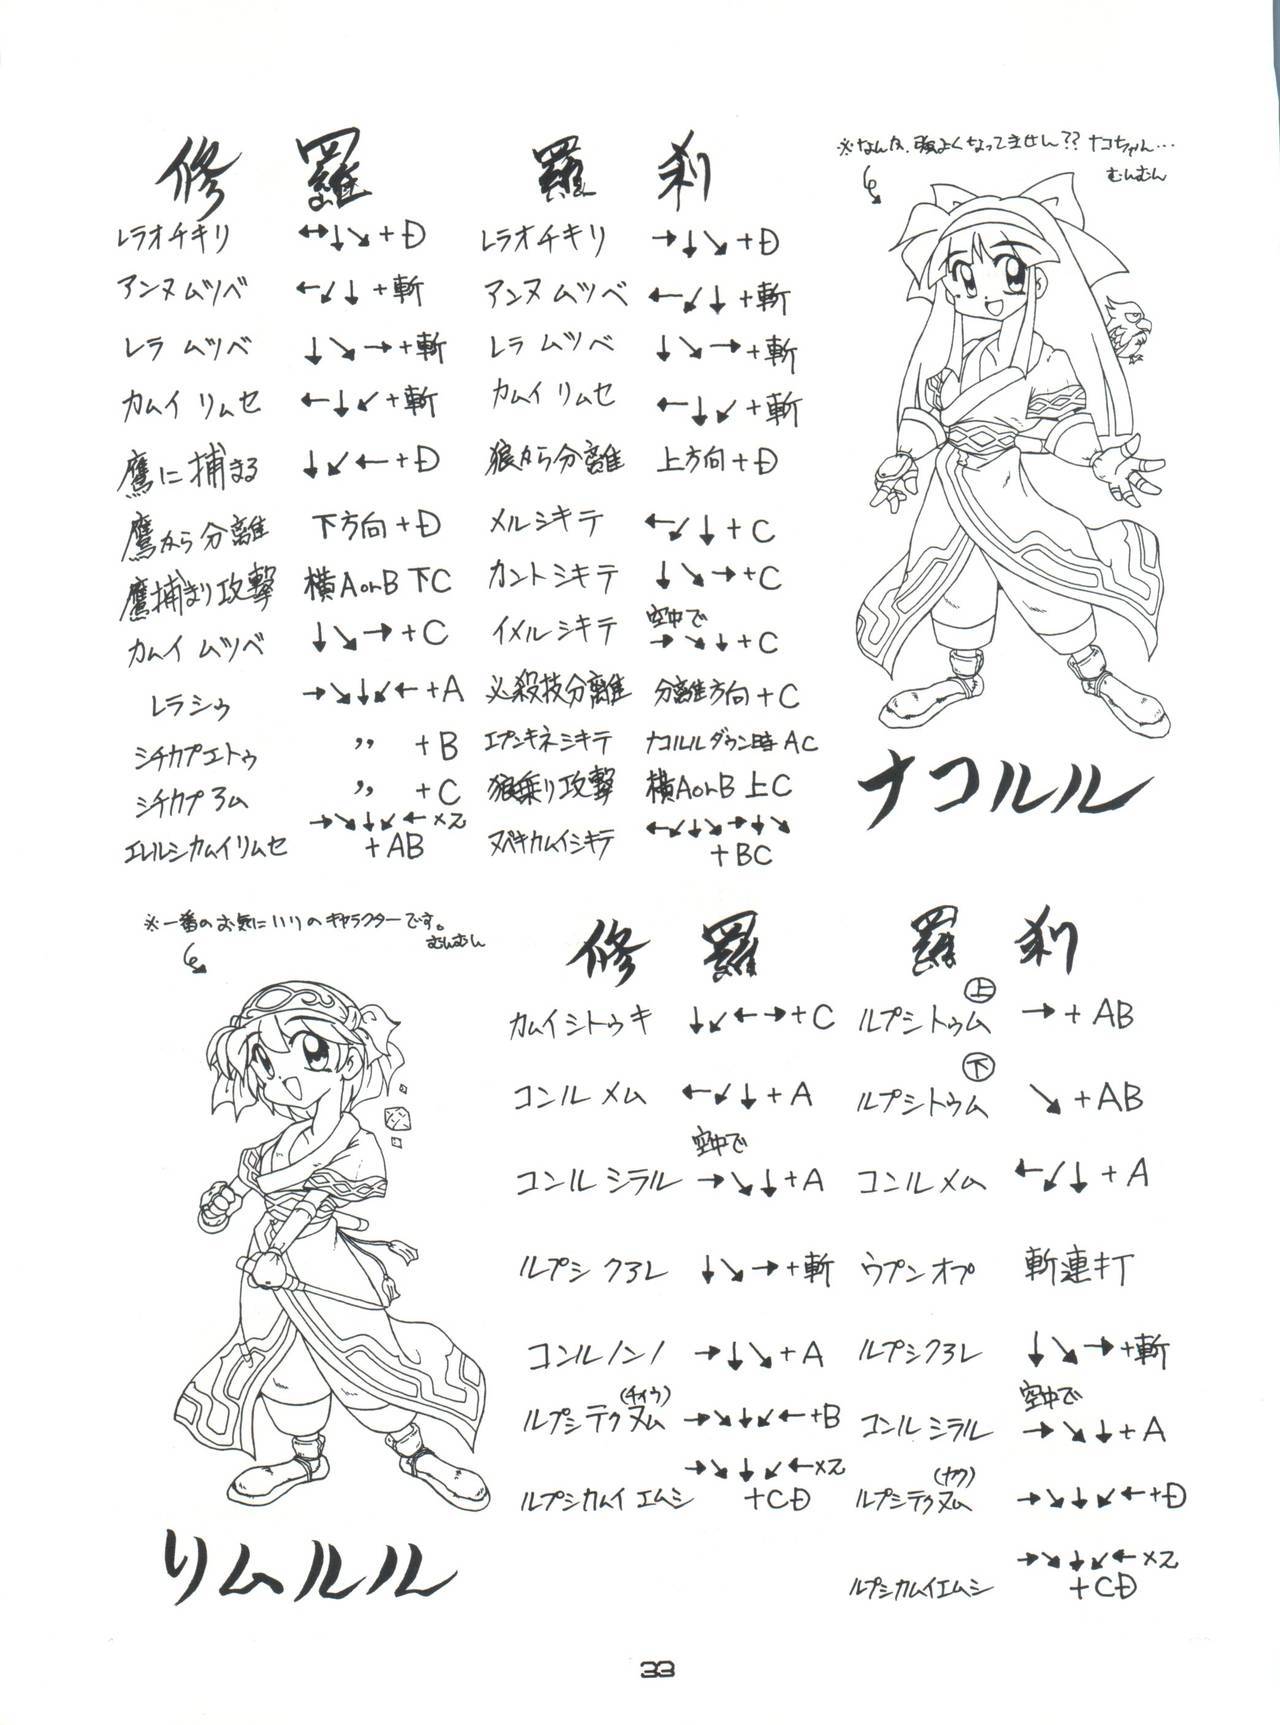 修羅
羅刹
※なんか、強よくなってません?? ナコちゃん…
むんむん
レラオチキリ ↔↓↘+D
レラオチキリ →↓↘+D
アンヌムツベ ←↙↓+斬
アンヌムツベ ←↙↓+斬
レラ ムツベ ↓↘→+斬
レラ ムツベ ↓↘→+斬
カムイ リムセ ←↓↙+斬
カムイ リムセ ←↓↙+斬
鷹に捕まる ↓↙←+D
狼から分離 上方向+D
鷹から分離 下方向+D
メルシキテ ←↙↓+C
鷹捕まり攻撃 横AorB 下C
カントシキテ ↓↘→+C
カムイ ムツベ ↓↘→+C
イメルシキテ 空中で →↘↓+C
レラシゥ →↘↓↙←+A
必殺技分離 分離方向+C
シチカプエトゥ 〃 +B
エプンキネシキテ ナコルルダウン時AC
シチカプヨム 〃 +C
狼乗り攻撃 横AorB 上C
エレルシカムイリムセ →↘↓↙←×2 +AB
ヌペキカムイシキテ ←↙↓↘→↓↘ +BC
ナコルル
※一番のお気にいりのキャラクターです。
むんむん
修羅
羅刹
カムイシトゥキ ↓↙←→+C
ルプシトゥム 上 →+AB
コンルメム ←↙↓+A
ルプシトゥム 下 ↘+AB
コンルシラル 空中で →↘↓+A
コンルメム ←↙↓+A
ルプシクヨレ ↓↘→+斬
ウプンオプ 斬連打
コンルノンノ →↓↘+A
ルプシクヨレ ↓↘→+斬
ルプシテクヌム(チィウ) →↘↓↙←+B
コンルシラル 空中で →↘↓+A
ルプシカムイエムシ →↘↓↙←×2 +CD
ルプシテクヌム(ヤク) →↘↓↙←+D
ルプシカムイエムシ →↘↓↙←×2 +CD
リムルル
33